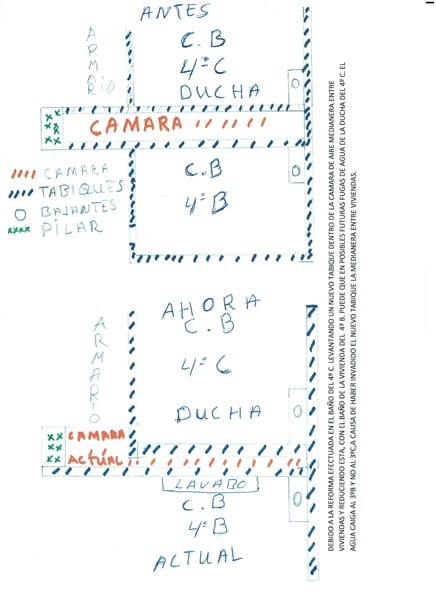 ANTES
ARMARIO
C.B
4º C
DUCHA
CAMARA
C.B
4º B
CAMARA
TABIQUES
BAJANTES
PILAR
AHORA
C.B
ARMARIO
4º C
DUCHA
CAMARA
ACTUAL
LAVABO
C.B
4º B
ACTUAL
DEBIDO A LA REFORMA EFECTUADA EN EL BAÑO DEL 4º C. LEVANTANDO UN NUEVO TABIQUE DENTRO DE LA CAMARA DE AIRE MEDIANERA ENTRE
VIVIENDAS Y REDUCIENDO ESTA, CON EL BAÑO DE LA VIVIENDA DEL 4º B. PUEDE QUE EN POSIBLES FUTURAS FUGAS DE AGUA DE LA DUCHA DEL 4º C. EL
AGUA CAIGA AL 3ºB Y NO AL 3ºC,A CAUSA DE HABER INVADIDO EL NUEVO TABIQUE LA MEDIANERA ENTRE VIVIENDAS.